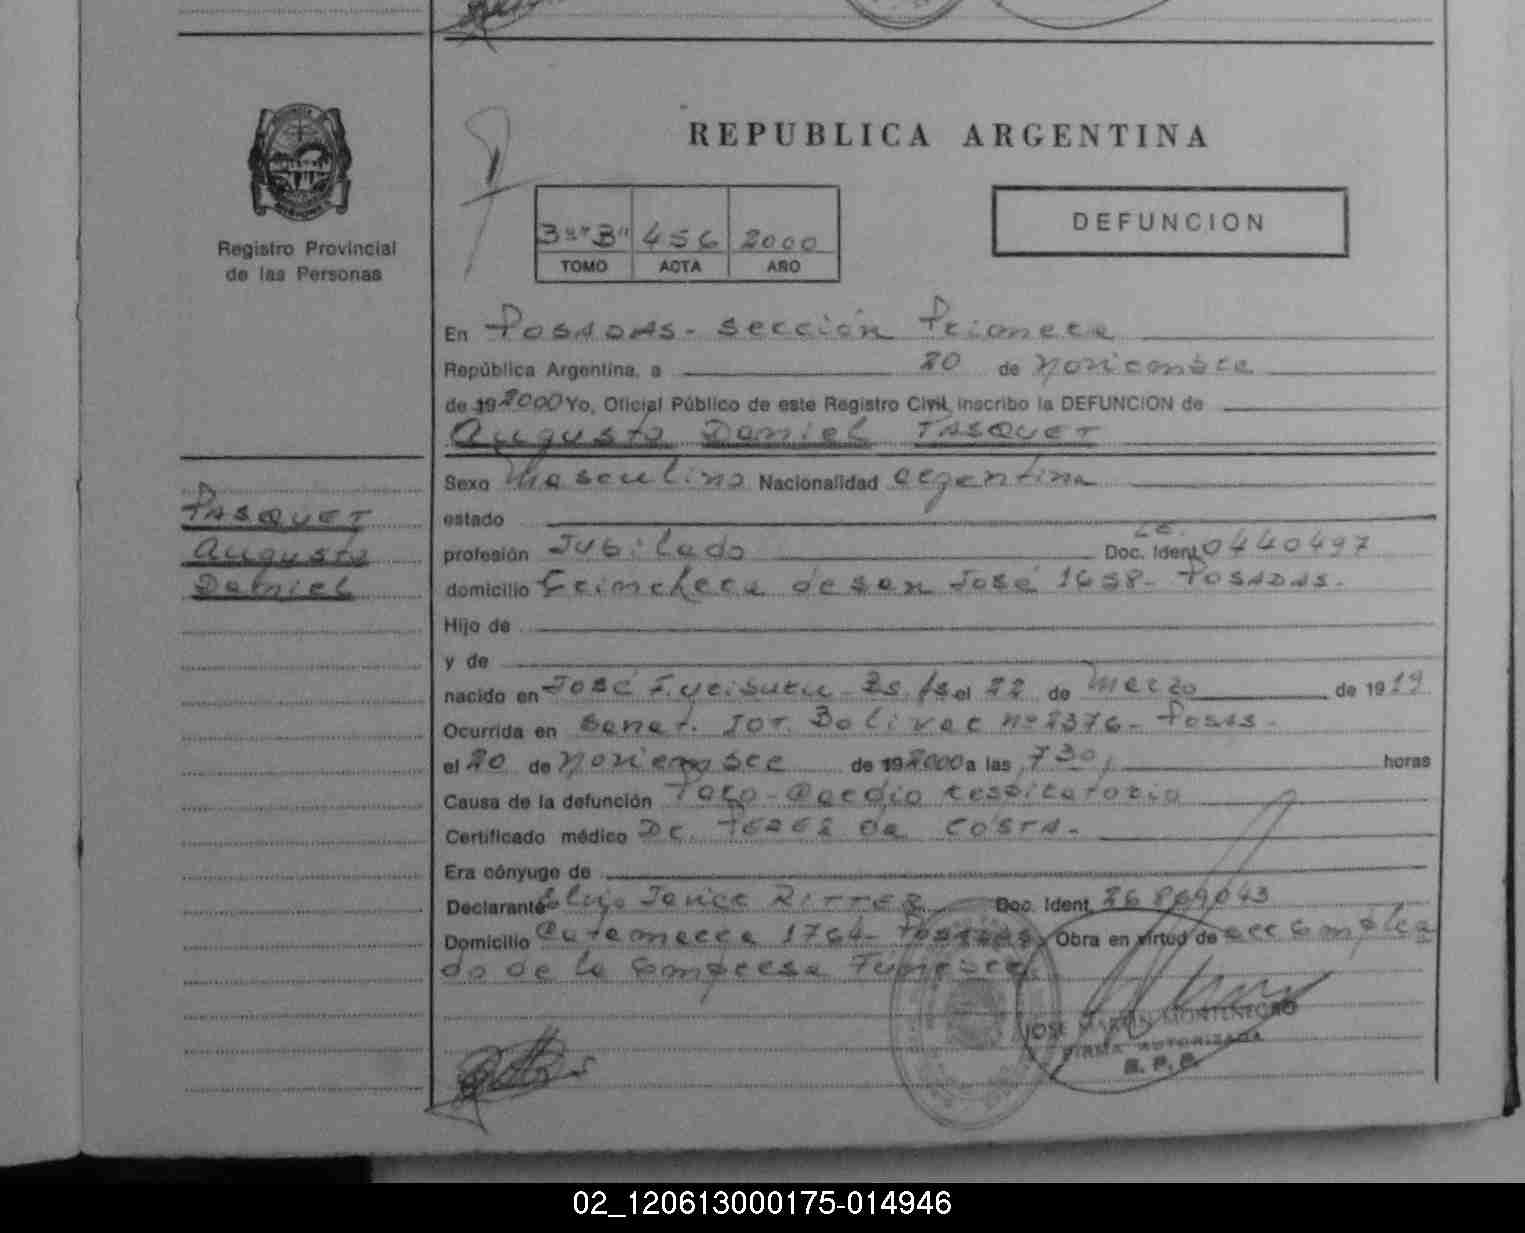 REPUBLICA ARGENTINA
DEFUNCION
Registro Provincial
de las Personas
3º "B" 456 2000
TOMO ACTA AÑO
En POSADAS - Sección Primera
República Argentina, a 20 de Noviembre
de 19 2000 Yo, Oficial Público de este Registro Civil, inscribo la DEFUNCION de
Augusto Daniel PASQUET
PASQUET
Augusto
Daniel
Sexo Masculino Nacionalidad argentina
estado
profesión Jubilado Doc. Ident. L.E. 0440497
domicilio Trinchera de San José 1658 - POSADAS.
Hijo de
y de
nacido en José F. Bs. As. el 22 de Marzo de 1919
Ocurrida en Sanat. IOT. Bolivar nº 2376 - Posas -
el 20 de Noviembre de 19 2000 a las 7 30, horas
Causa de la defunción Paro - Cardio respiratorio
Certificado médico Dr. PEREZ da COSTA -
Era cónyuge de
Declarante Javier RITTER Doc. Ident. 26869043
Domicilio Catamarca 1764 - Posadas. Obra en virtud de ser emplea
do de la empresa Funebre.
JOSE MARTIN MONTENEGRO
FIRMA AUTORIZADA
R. P. P.
02_120613000175-014946